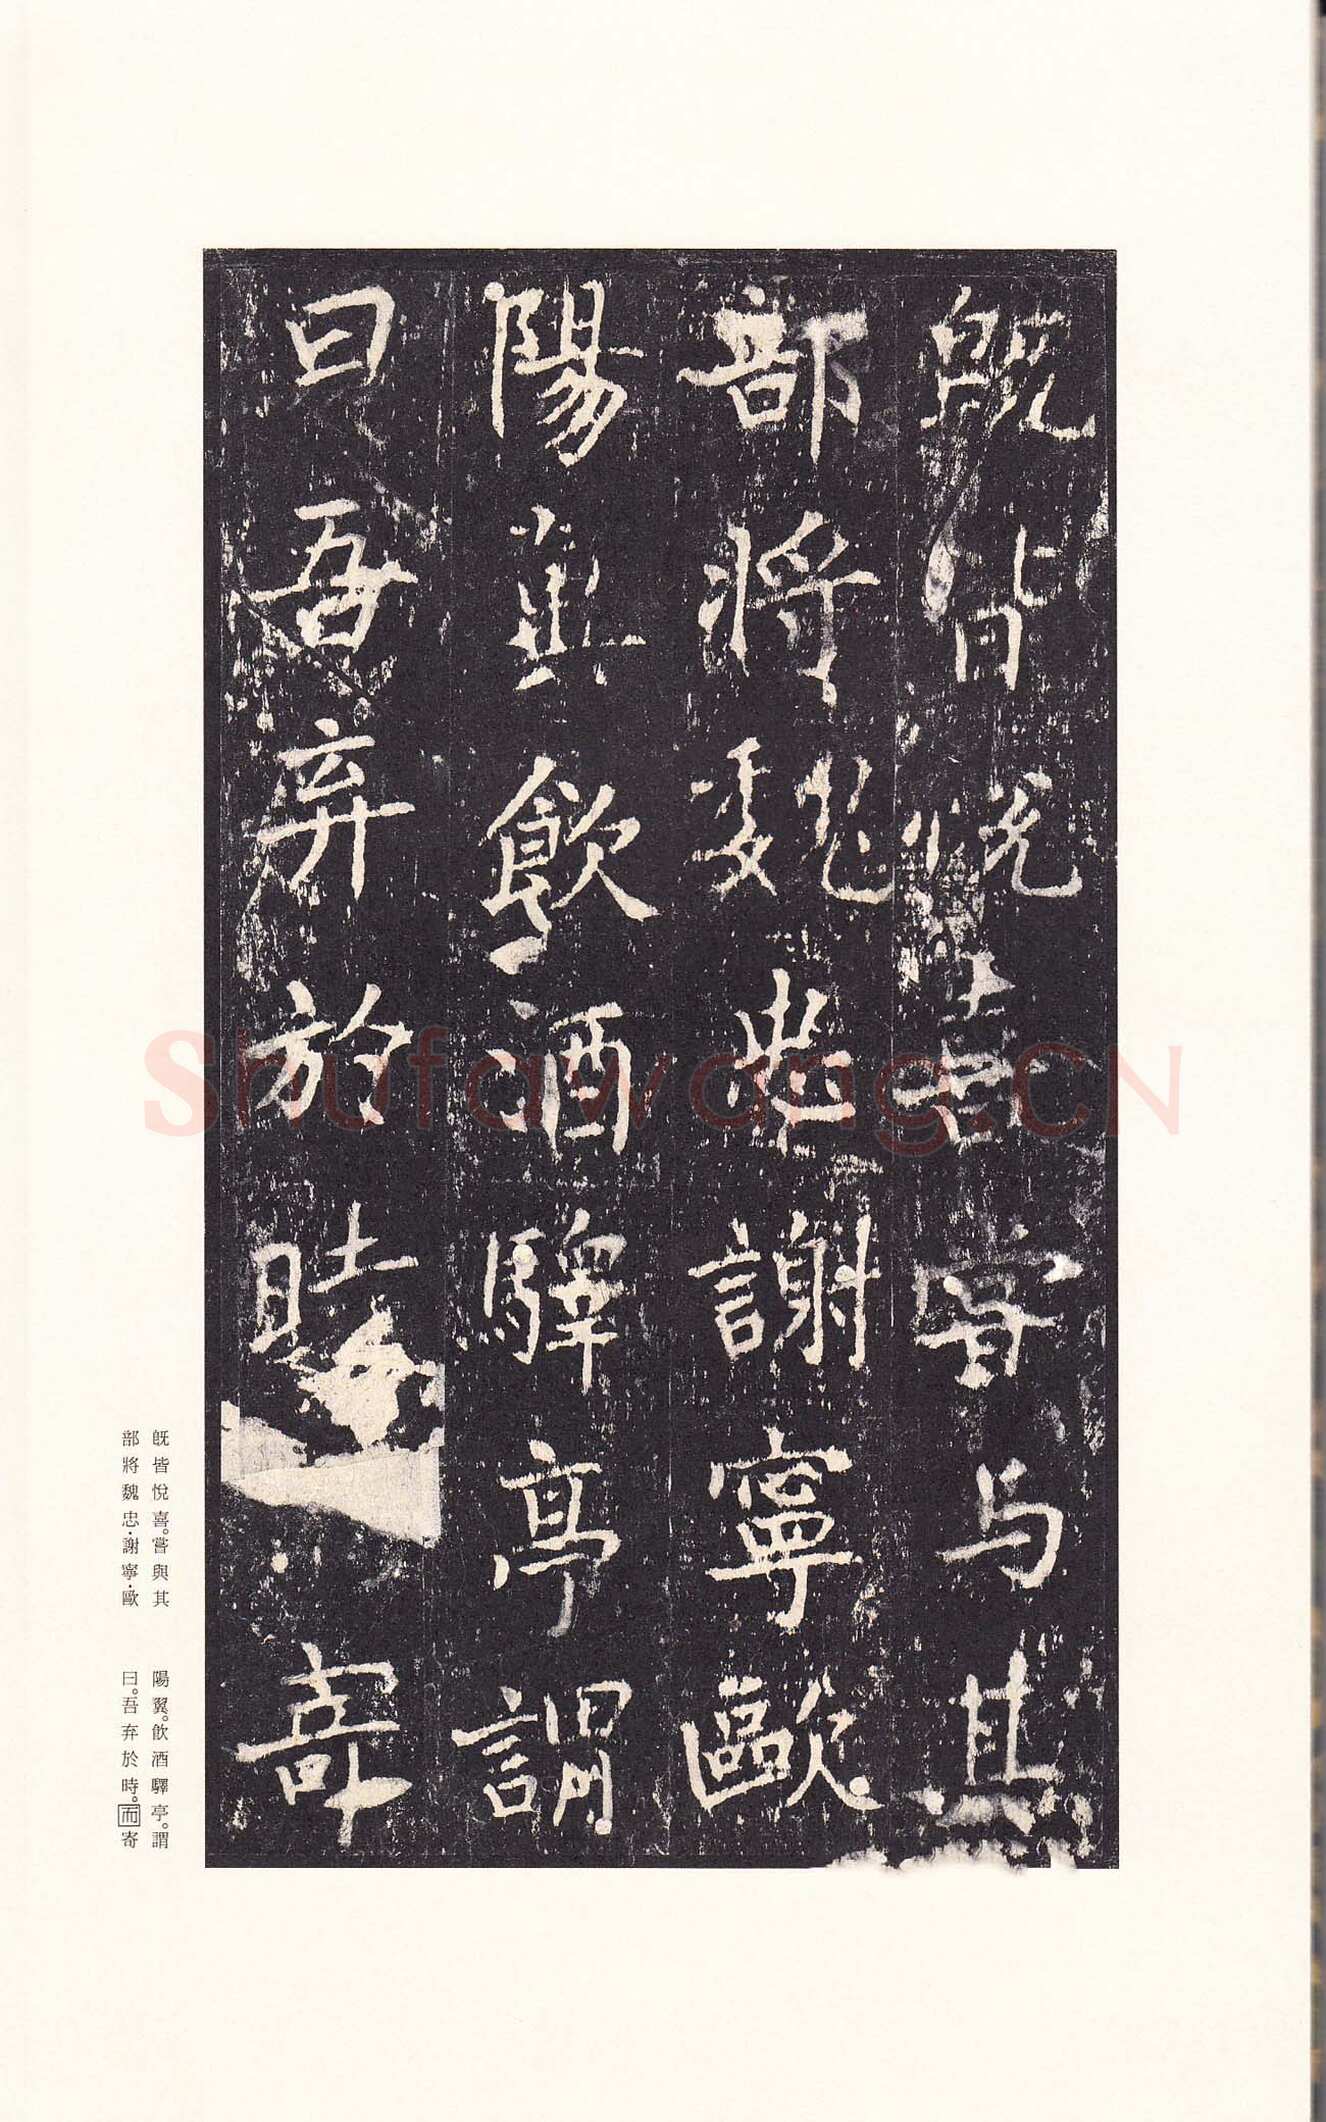 既皆悅喜甞与其
部將魏忠謝寧歐
陽翼飲酒驛亭謂
曰吾弃於時寄
既皆悅喜。嘗與其
部將魏忠·謝寧·歐
陽翼。飲酒驛亭。謂
曰。吾弃於時。而寄
Shufawang.CN